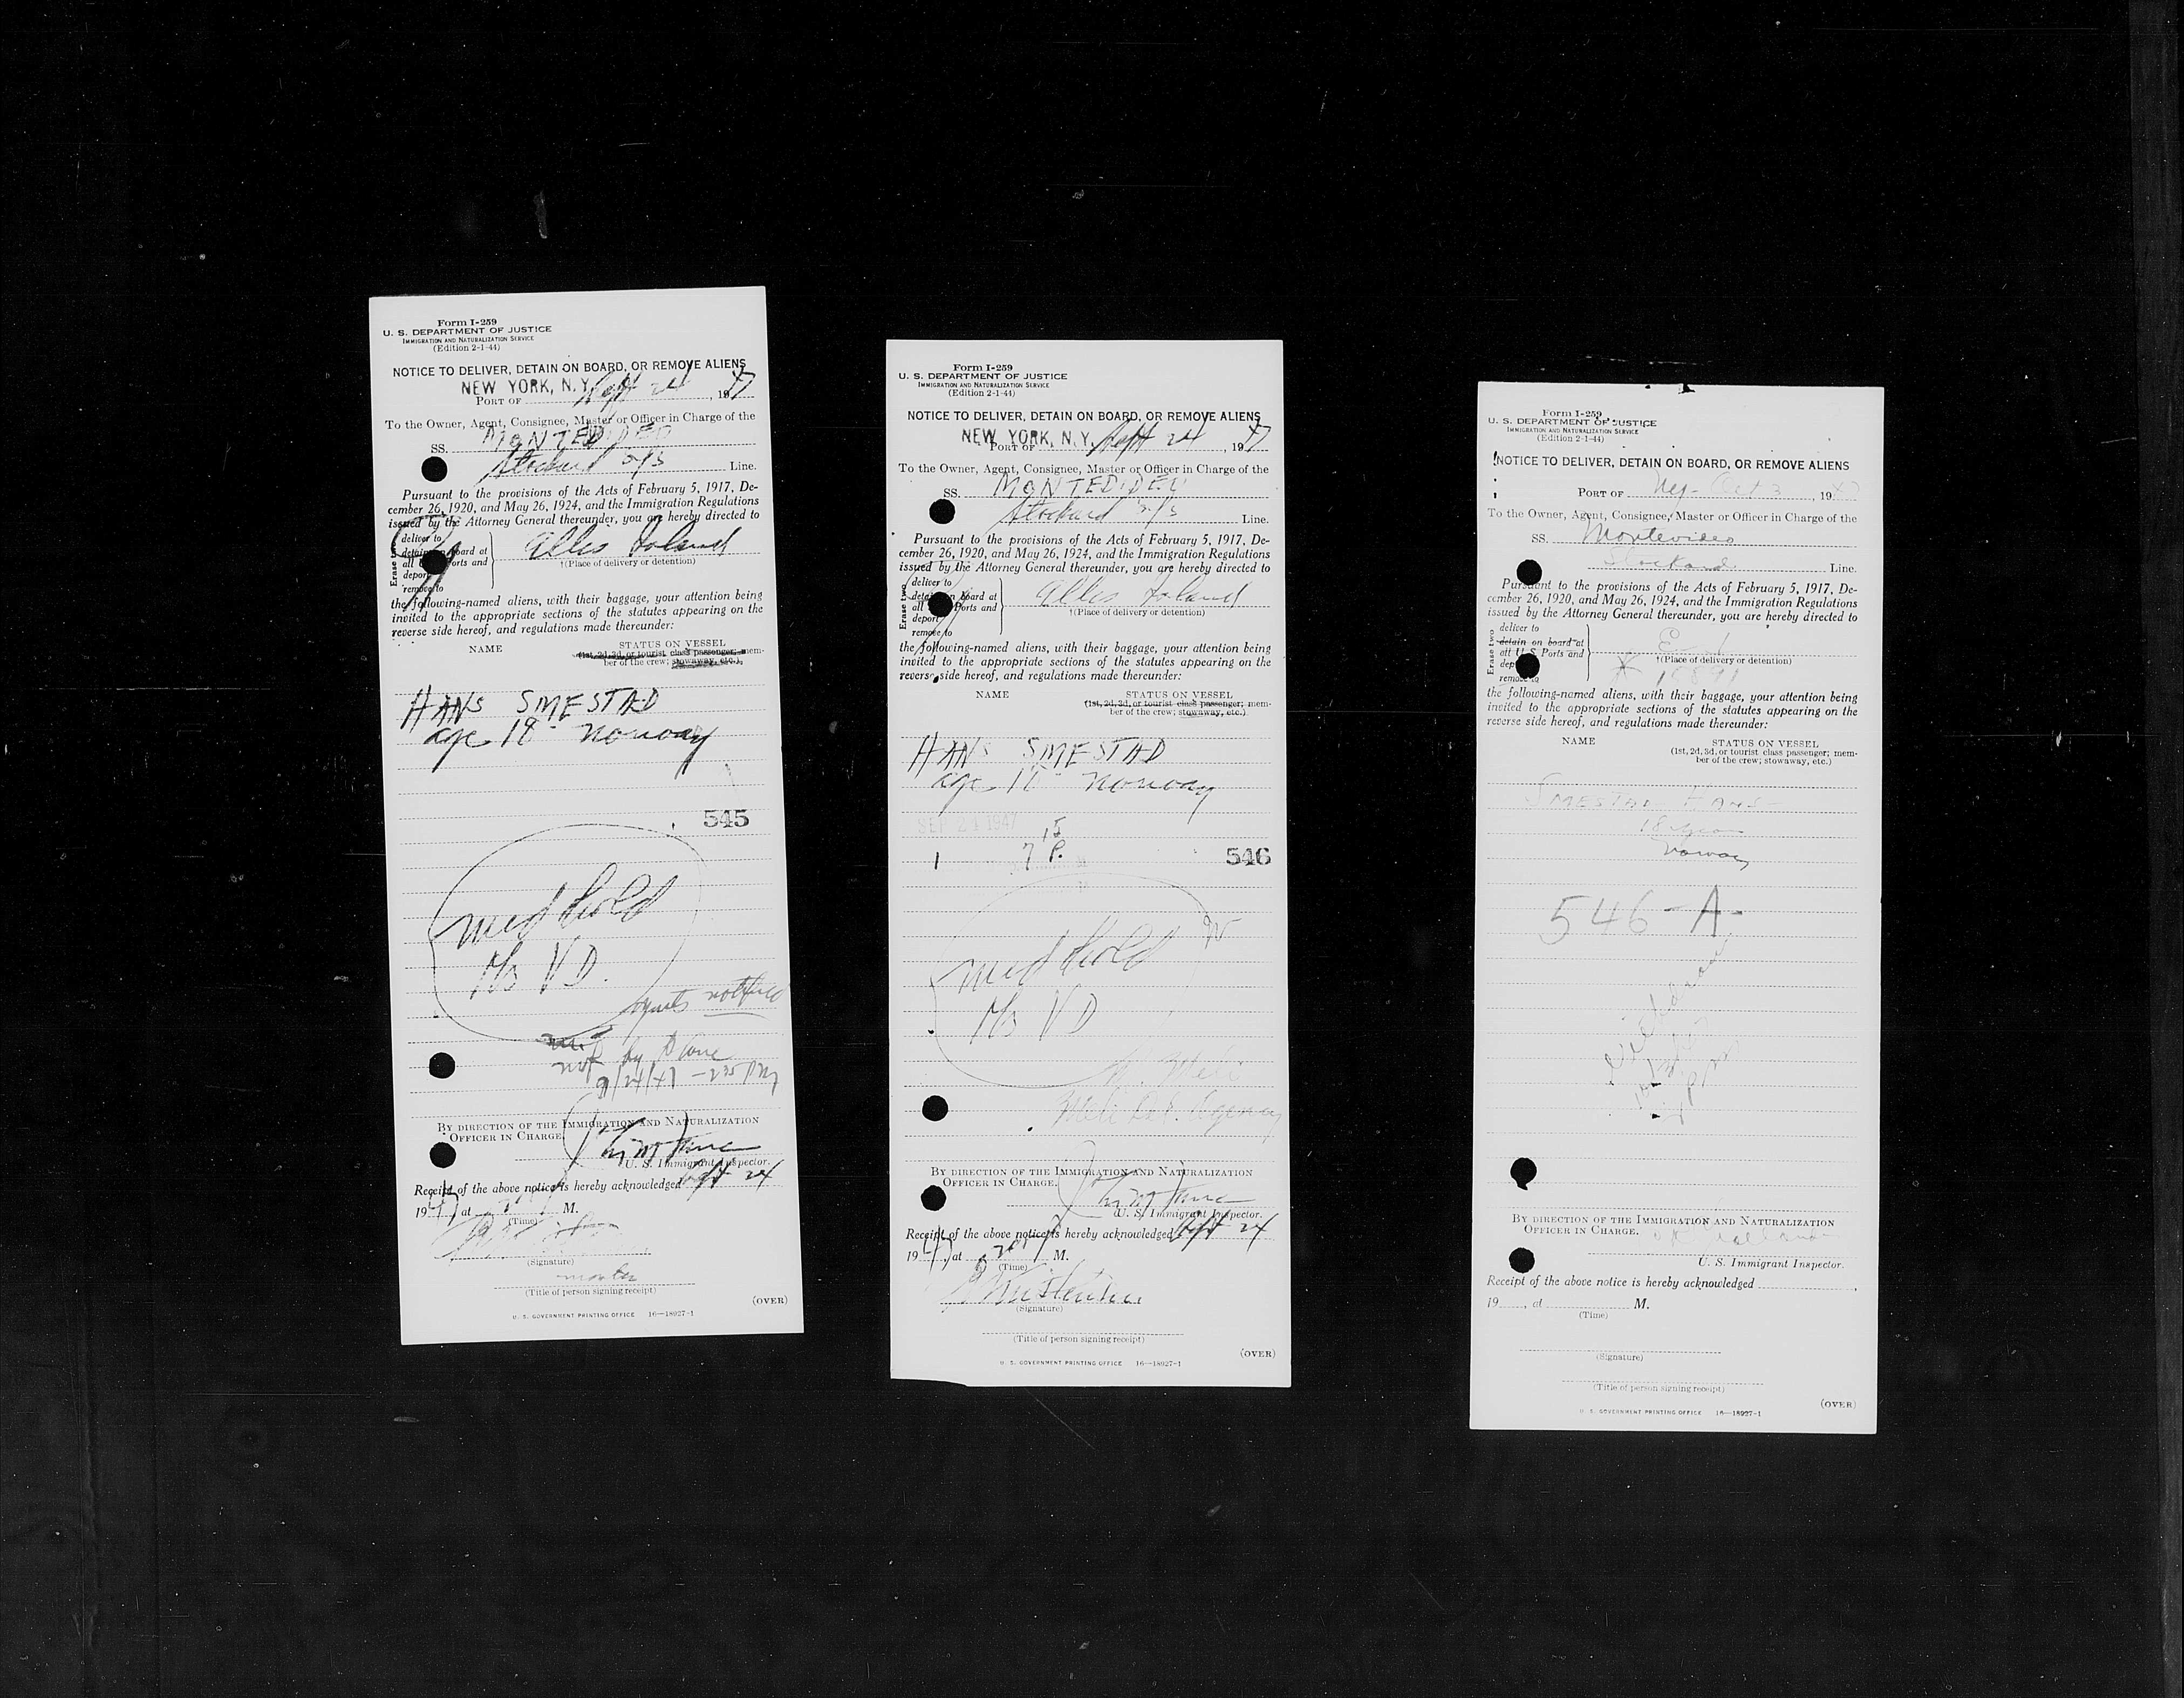 Form I-259
U. S. DEPARTMENT OF JUSTICE
IMMIGRATION AND NATURALIZATION SERVICE
(Edition 2-1-44)
NOTICE TO DELIVER, DETAIN ON BOARD, OR REMOVE ALIENS
NEW YORK, N. Y.
PORT OF Sept 24, 1947
To the Owner, Agent, Consignee, Master or Officer in Charge of the
SS. MONTEVIDEO
Stockard S/S Line.
Pursuant to the provisions of the Acts of February 5, 1917, De-
cember 26, 1920, and May 26, 1924, and the Immigration Regulations
issued by the Attorney General thereunder, you are hereby directed to
Erase two
deliver to
detain on board at
all Ports and
deport
remove to
Ellis Island
†(Place of delivery or detention)
the following-named aliens, with their baggage, your attention being
invited to the appropriate sections of the statutes appearing on the
reverse side hereof, and regulations made thereunder:
NAME
STATUS ON VESSEL
(1st, 2d, 3d, or tourist class passenger; mem-
ber of the crew; stowaway, etc.)
HANS SMESTAD
age 18 - Norway
545
med hold
VD.
agents notified
not by Phone
9/24/47 - 2 35 PM
BY DIRECTION OF THE IMMIGRATION AND NATURALIZATION
OFFICER IN CHARGE.
U. S. Immigrant Inspector.
Receipt of the above notice is hereby acknowledged Sept 24
1947 at M.
(Time)
(Signature)
master
(Title of person signing receipt)
(OVER)
U. S. GOVERNMENT PRINTING OFFICE 16—18927-1
Form I-259
U. S. DEPARTMENT OF JUSTICE
IMMIGRATION AND NATURALIZATION SERVICE
(Edition 2-1-44)
NOTICE TO DELIVER, DETAIN ON BOARD, OR REMOVE ALIENS
NEW YORK, N. Y.
PORT OF Sept 24, 1947
To the Owner, Agent, Consignee, Master or Officer in Charge of the
SS. MONTEVIDEO
Stockard S/S Line.
Pursuant to the provisions of the Acts of February 5, 1917, De-
cember 26, 1920, and May 26, 1924, and the Immigration Regulations
issued by the Attorney General thereunder, you are hereby directed to
Erase two
deliver to
detain on board at
all Ports and
deport
remove to
Ellis Island
†(Place of delivery or detention)
the following-named aliens, with their baggage, your attention being
invited to the appropriate sections of the statutes appearing on the
reverse side hereof, and regulations made thereunder:
NAME
STATUS ON VESSEL
(1st, 2d, 3d, or tourist class passenger; mem-
ber of the crew; stowaway, etc.)
HANS SMESTAD
age 18 - Norway
SEP 24 1947
1 7 15 P.
546
med hold
VD
Agency
BY DIRECTION OF THE IMMIGRATION AND NATURALIZATION
OFFICER IN CHARGE.
U. S. Immigrant Inspector.
Receipt of the above notice is hereby acknowledged Sept 24
1947 at M.
(Time)
(Signature)
(Title of person signing receipt)
(OVER)
U. S. GOVERNMENT PRINTING OFFICE 16—18927-1
Form I-259
U. S. DEPARTMENT OF JUSTICE
IMMIGRATION AND NATURALIZATION SERVICE
(Edition 2-1-44)
NOTICE TO DELIVER, DETAIN ON BOARD, OR REMOVE ALIENS
PORT OF Oct 3, 1947
To the Owner, Agent, Consignee, Master or Officer in Charge of the
SS. Montevideo
Stockard Line.
Pursuant to the provisions of the Acts of February 5, 1917, De-
cember 26, 1920, and May 26, 1924, and the Immigration Regulations
issued by the Attorney General thereunder, you are hereby directed to
Erase two
deliver to
detain on board at
all U S Ports and
deport
remove to
†(Place of delivery or detention)
the following-named aliens, with their baggage, your attention being
invited to the appropriate sections of the statutes appearing on the
reverse side hereof, and regulations made thereunder:
NAME
STATUS ON VESSEL
(1st, 2d, 3d, or tourist class passenger; mem-
ber of the crew; stowaway, etc.)
SMESTAD HANS -
18 years
Norway
546 - A -
BY DIRECTION OF THE IMMIGRATION AND NATURALIZATION
OFFICER IN CHARGE.
U. S. Immigrant Inspector.
Receipt of the above notice is hereby acknowledged
19 , at M.
(Time)
(Signature)
(Title of person signing receipt)
(OVER)
U. S. GOVERNMENT PRINTING OFFICE 16—18927-1